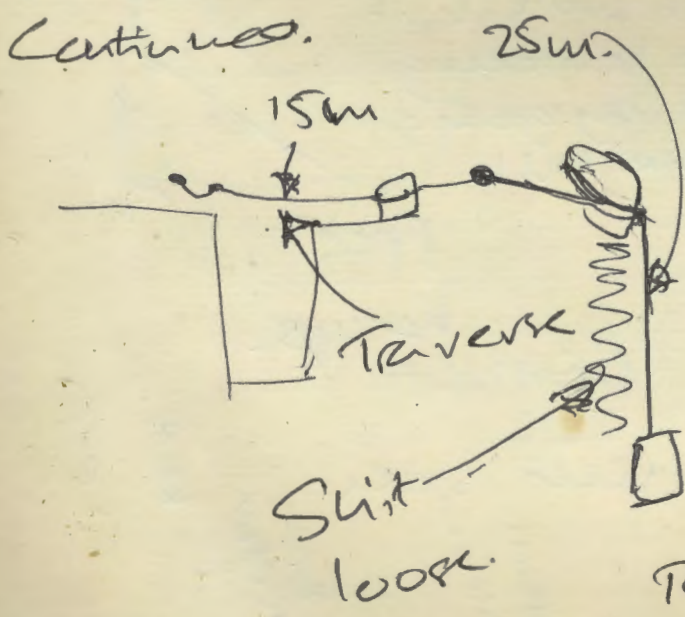 Continued.
25m.
15m
Traverse
Shit
loose.